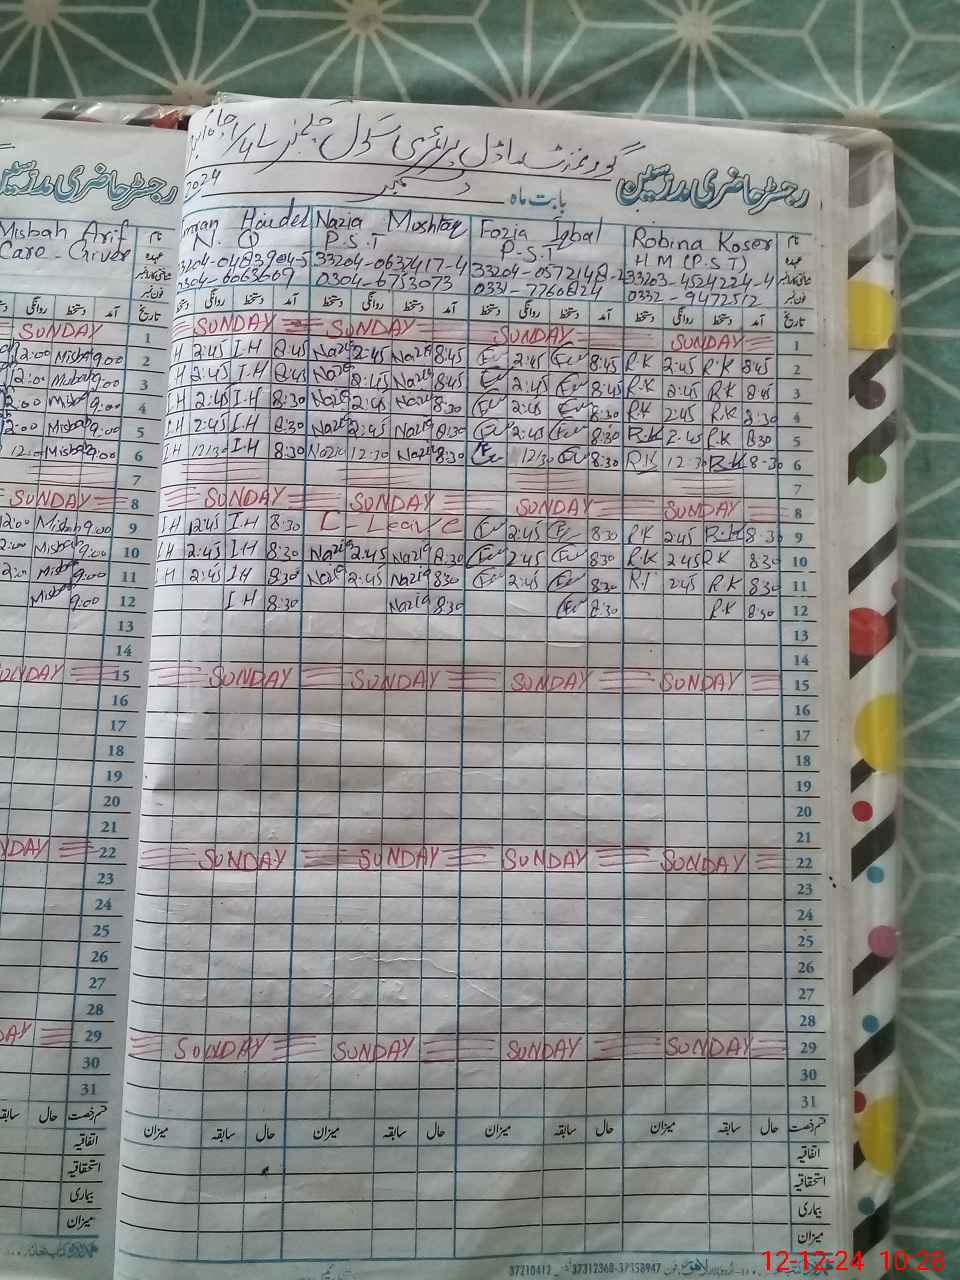 گورنمنٹ ماڈل پرائمری سکول
2024
رجسٹر حاضری مدرسین
بابت ماہ دسمبر
رجسٹر حاضری مدرسین
Misbah Arif
Care-Giver
Haidel
N. Q
0304-6063609
Nazia Mushtaq
P.S.T
33204-0637417-4
0304-6753073
Fozia Iqbal
P.S.T
33204-0572148-2
0331-7760824
Robina Koser
H M (P.S.T)
33203-4524224-4
0332-9472512
نام
عہدہ
فون نمبر
روانگی دستخط آمد دستخط روانگی دستخط آمد دستخط روانگی دستخط آمد دستخط روانگی دستخط آمد تاریخ
SUNDAY 1 SUNDAY SUNDAY SUNDAY SUNDAY 1
2:00 Misbah 9:00 2 IH 2:45 I-H 8:45 Nazia 2:45 Nazia 8:45 2:45 8:45 RK 2:45 R-K 8:45 2
12:00 Misbah 9:00 3 H 2:45 I-H 8:45 Nazia 2:45 Nazia 8:45 2:45 8:45 R-K 2:45 R-K 8:45 3
2:00 Misbah 9:00 4 H 2:45 I-H 8:30 Nazia 2:45 Nazia 8:30 2:45 8:30 R-K 2:45 R-K 8:30 4
2:00 Misbah 9:00 5 IH 2:45 I-H 8:30 Nazia 2:45 Nazia 8:30 2:45 8:30 R-K 2:45 R-K 8:30 5
Misbah 9:00 6 IH 12:30 I-H 8:30 Nazia 12:30 Nazia 8:30 12:30 8:30 R-K 12:30 R-K 8:30 6
7 7
SUNDAY 8 SUNDAY SUNDAY SUNDAY SUNDAY 8
2:00 Misbah 9:00 9 IH 2:45 I-H 8:30 C-Leave 2:45 8:30 R-K 2:45 R-K 8:30 9
2:00 Misbah 9:00 10 IH 2:45 I-H 8:30 Nazia 2:45 Nazia 8:30 2:45 8:30 R-K 2:45 R K 8:30 10
2:00 Misbah 9:00 11 H 2:45 I H 8:30 Nazia 2:45 Nazia 8:30 2:45 8:30 2:45 R K 8:30 11
Misbah 9:00 12 I H 8:30 Nazia 8:30 8:30 R-K 8:30 12
13 13
14 14
SUNDAY 15 SUNDAY SUNDAY SUNDAY SUNDAY 15
16 16
17 17
18 18
19 19
20 20
21 21
NDAY 22 SUNDAY SUNDAY SUNDAY SUNDAY 22
23 23
24 24
25 25
26 26
27 27
28 28
DAY 29 SUNDAY SUNDAY SUNDAY SUNDAY 29
30 30
31 31
سابقہ حال قسم رخصت میزان سابقہ حال میزان سابقہ حال میزان سابقہ حال میزان سابقہ حال قسم رخصت
اتفاقیہ اتفاقیہ
استحقاقیہ استحقاقیہ
بیماری بیماری
میزان میزان
37210412 37312368-37358947 لاہور
12-12-24 10:28